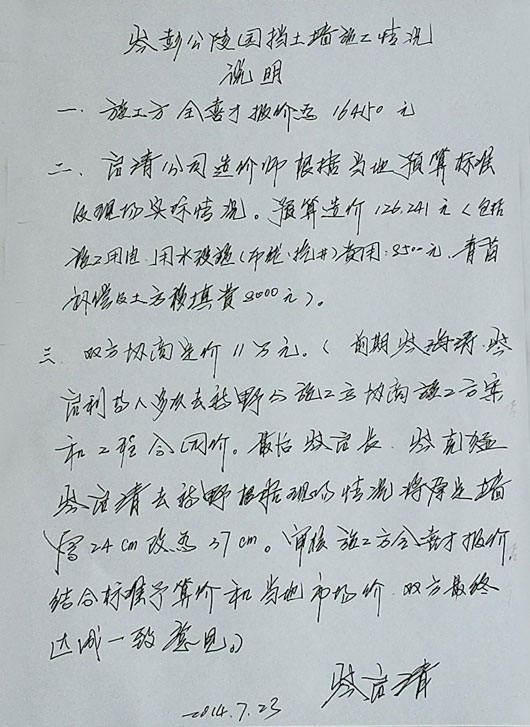 柴彭公陵园挡土墙施工情况
说明
一. 施工方全喜才报价为 16450 元
二. 启清公司造价师根据当地预算标准
及现场实际情况。预算造价126.241元(包括
施工用电.用水设施(布线.挖井)费用:3500元.青苗
补偿及土方移填费8000元)。
三. 双方协商定价11万元。(前期柴海涛.柴
启利等人多次去新野与施工方协商施工方案
和工程合同价。最后柴启长.柴克猛
柴启清去新野根据现场情况将原定墙
宽24cm改为37cm。审核施工方全喜才报价.
结合标准予算价和当地市场价.双方最终
达成一致意见。)
柴启清
2014.7.23